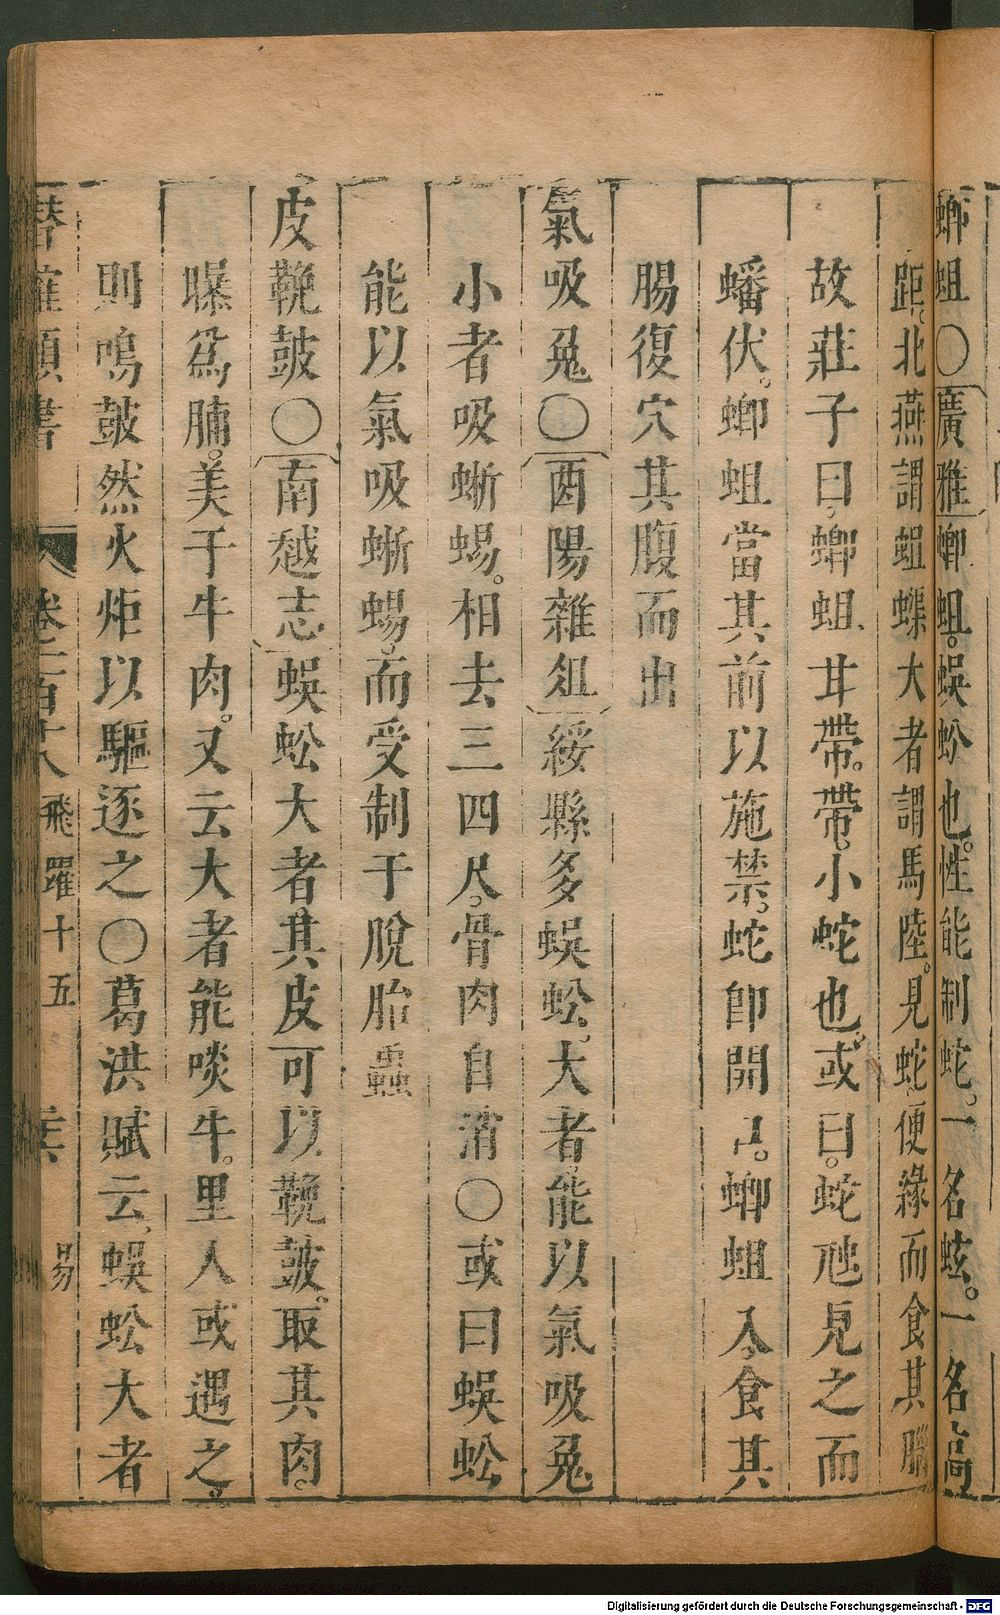 蝍蛆○廣雅蝍蛆。蜈蚣也。性能制蛇。一名蚿。一名蒿
距。北燕謂蛆蝶大者謂馬陸。見蛇便緣而食其腦
故莊子曰。蝍蛆甘帶。帶。小蛇也。或曰。蛇虺見之而
蟠伏。蝍蛆當其前以施禁。蛇卽開口。蝍蛆入。食其
腸復穴其腹而出
氣吸兔○酉陽雜俎綏縣多蜈蚣。大者能以氣吸兔
小者吸蜥蜴。相去三四尺。骨肉自消○或曰蜈蚣
能以氣吸蜥蜴。而受制于脫胎蟲
皮鞔鼓○南越志蜈蚣大者其皮可以鞔鼓。取其肉。
曝爲脯。美于牛肉。又云大者能啖牛。里人或遇之
則鳴鼓然火炬以驅逐之○葛洪賦云。蜈蚣大者
潛確類書 卷之一百十八 飛躍十五 易
Digitalisierung gefördert durch die Deutsche Forschungsgemeinschaft - DFG